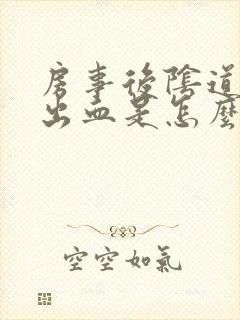 房事後陰道
出血是怎麼
空空如氣